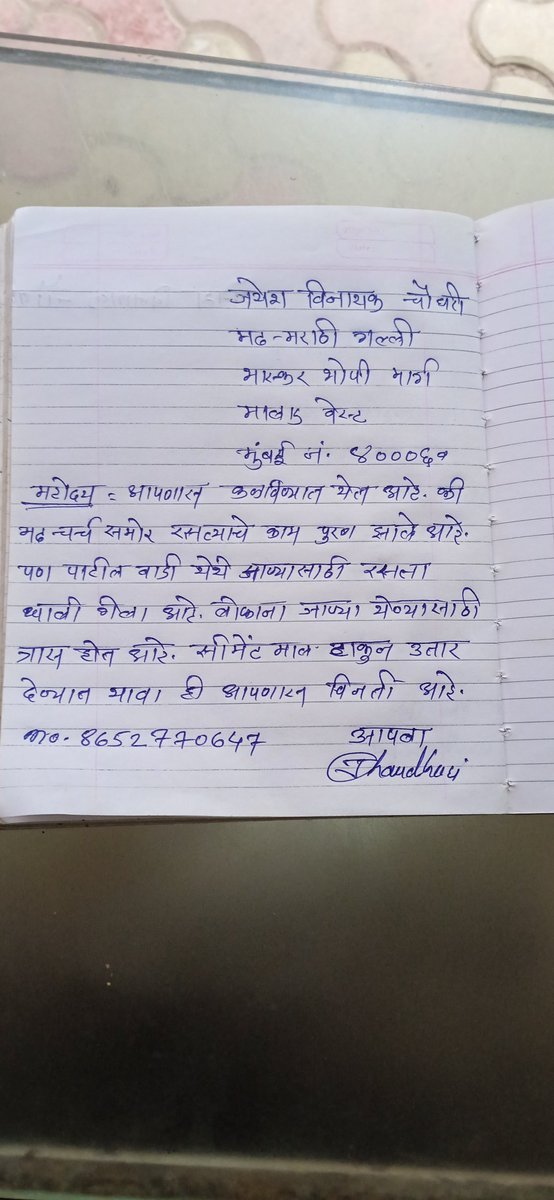 जयेश विनायक चौधरी
मढ-मराठी गल्ली
भास्कर भोपी मार्ग
मालाड वेस्ट
मुंबई नं. ४०००६१
महोदय = आपणास कळविण्यात येत आहे. की
मढ चर्च समोर रसत्याचे काम पुरण झाले आहे.
पण पाटील वाडी येथे जाण्यासाठी रसता
खाली गेला आहे. लोकाना जाण्या येण्यासाठी
त्रास होत आहे. सीमेंट माल टाकुन उतार
देण्यात यावा ही आपणास विनंती आहे.
mo. 8652770647 आपला
JChaudhari